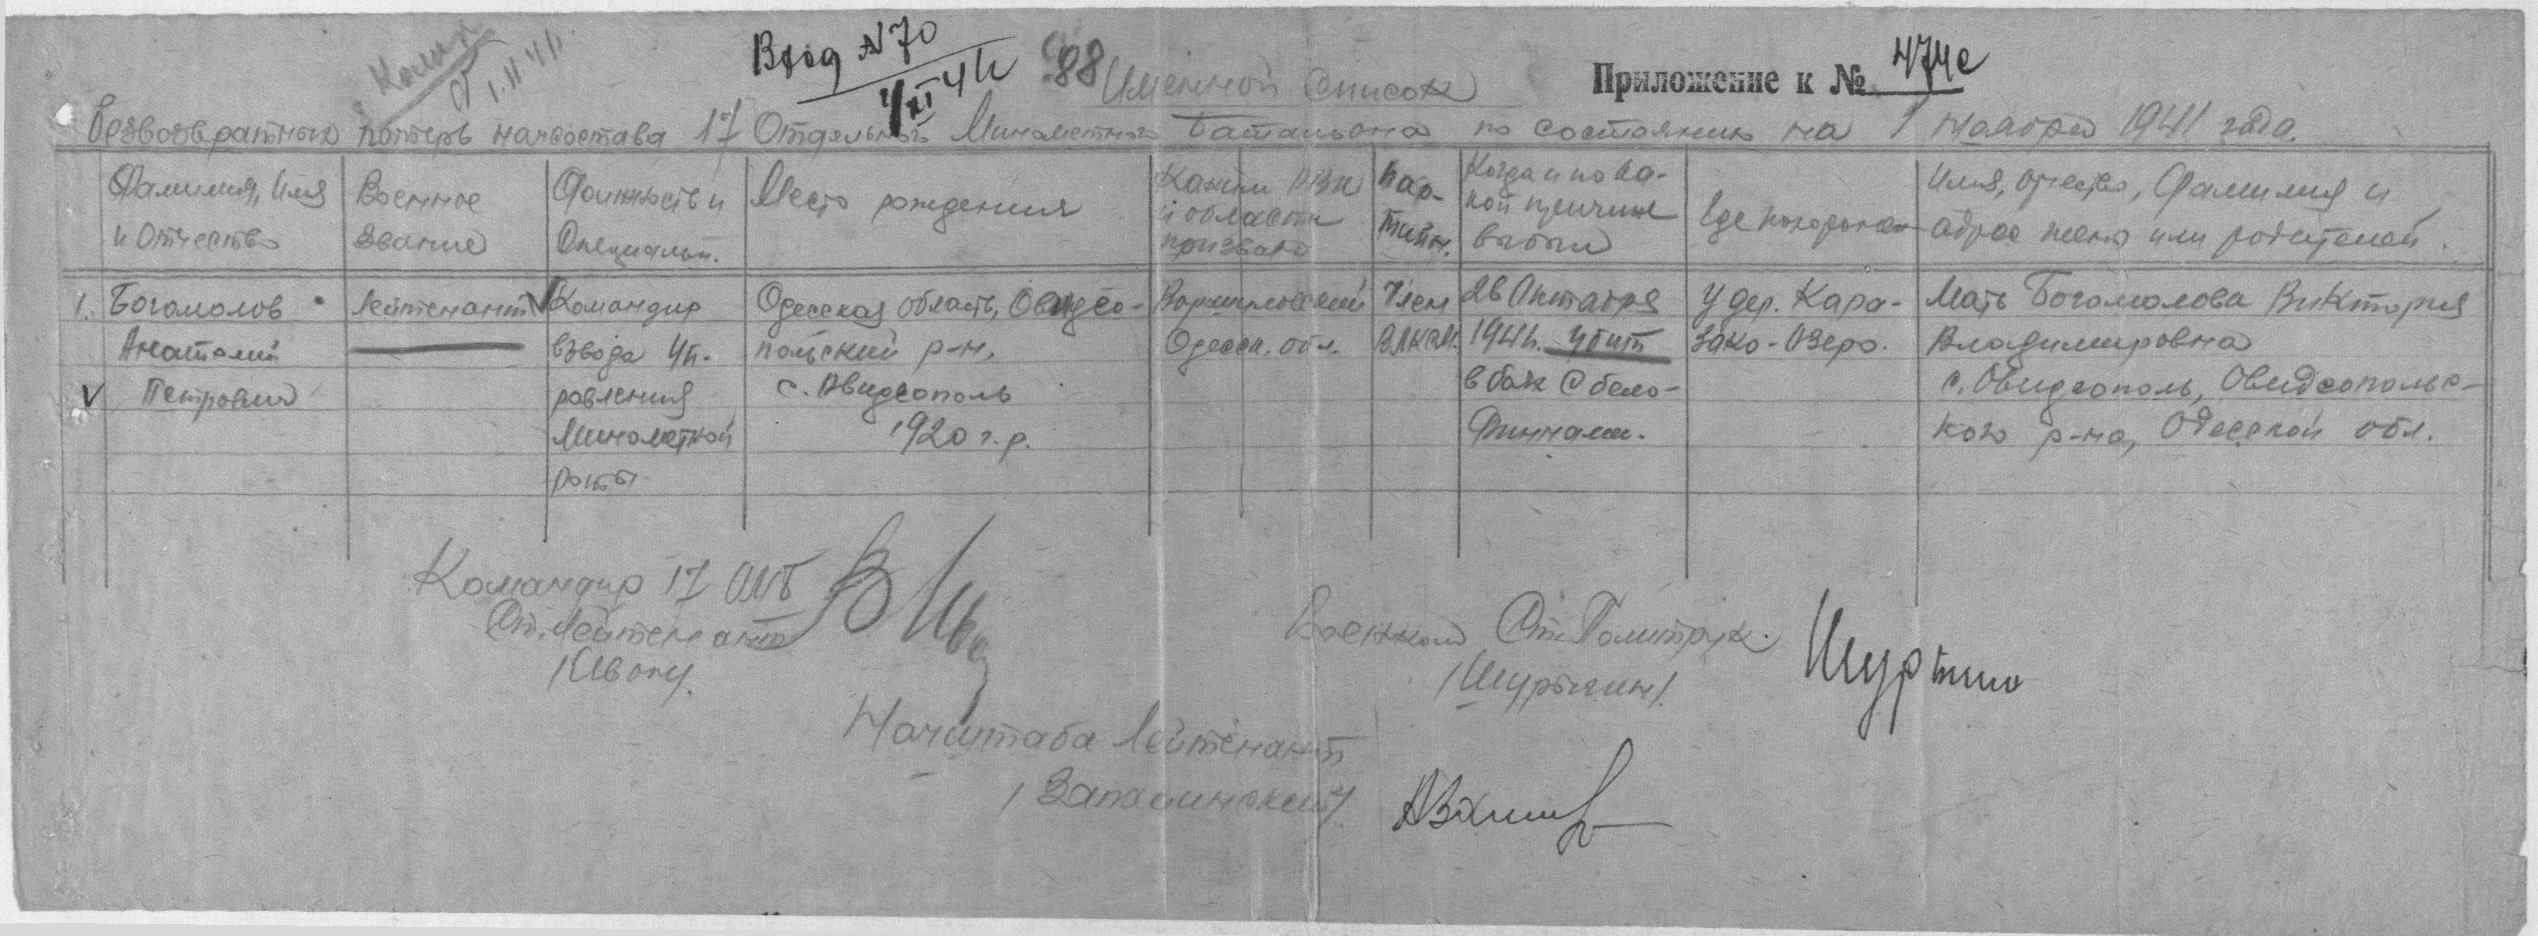 Вход №70
1/XI 41г
88
Приложение к № 474с
Именной список
безвозвратных потерь начсостава 17 Отдельного Минометного Батальона по состоянию на 1 Ноября 1941 года.
Фамилия, Имя и Отчество
Военное звание
Должность и Специальн.
Место рождения
Каким РВК и области призван
Пар-
тийн.
Когда и по ка-
кой причине
выбыл
Где похоронен
Имя, отчество, Фамилия и
адрес жены или родителей.
1. Богомолов
Анатолий
Петрович
Лейтенант
Командир
взвода Уп-
равления
Минометной
роты
Одесская область, Овидео-
польский р-н.
с. Овидеополь
1920 г.р.
Ворошиловский
Одесск. обл.
Член
ВЛКСМ.
26 Октября
1941г. убит
в бою с бело-
Финнами.
У дер. Кара-
зако-Озеро.
Мать Богомолова Виктория
Владимировна
с. Овидеополь, Овидеопольс-
кого р-на, Одесской обл.
Командир 17 ОМБ
Ст. Лейтенант
Военком Ст. Политрук.
/Шурыгин/.
Шурыгин
Начштаба Лейтенант